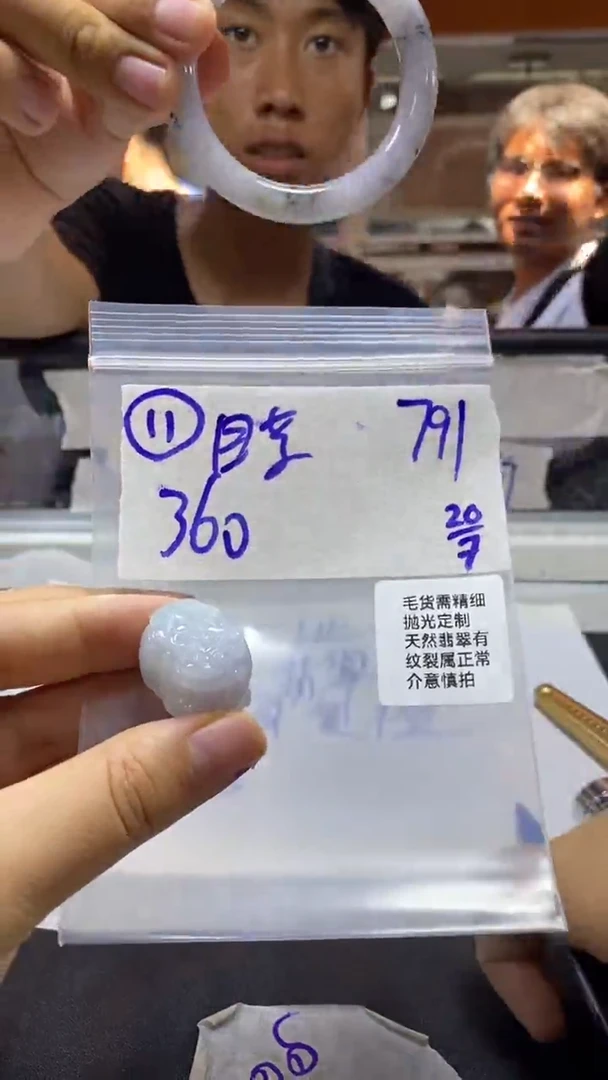 ⑪ 目幸 791
360
20/7
毛货需精细
抛光定制
天然翡翠有
纹裂属正常
介意慎拍